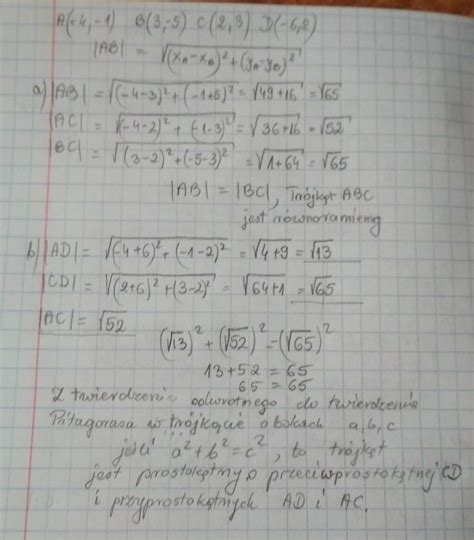 A(-4,-1) B(3,-5) C(2,3) D(-6,2)
|AB| = √(xA-xB)²+(yA-yB)²
a) |AB| = √(-4-3)²+(-1+5)² = √49+16 = √65
|AC| = √(-4-2)²+(-1-3)² = √36+16 = √52
|BC| = √(3-2)²+(-5-3)² = √1+64 = √65
|AB| = |BC|, Trójkąt ABC
jest równoramienny
b) |AD| = √(-4+6)²+(-1-2)² = √4+9 = √13
|CD| = √(2+6)²+(3-2)² = √64+1 = √65
|AC| = √52
(√13)² + (√52)² = (√65)²
13+52 = 65
65 = 65
Z twierdzenia odwrotnego do twierdzenia
Pitagorasa w trójkącie o bokach a,b,c
jeśli a²+b²=c², to trójkąt
jest prostokątny o przeciwprostokątnej CD
i przyprostokątnych AD i AC.